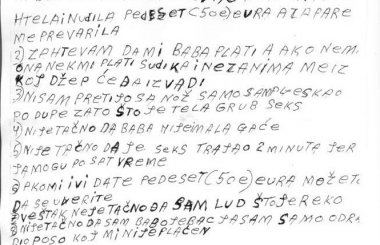 HTELA I NUDILA PEDESET (50e) EURA A ZAPARE
ME PREVARILA
2) ZAHTEVAM DA MI BABA PLATI A AKO NEM
ONA NEK MI PLATI SUD I KA I NEZANIMA ME IZ
KOJ DŽEP ĆE DA IZVADI
3) NISAM PRETIJO SA NOŽ SAMO SAM PLJESKAO
PO DUPE ZATO ŠTO JE TELA GRUB SEKS
4) NIJE TAČNO DA BABA NIJE IMALA GAĆE
5) NIJE TAČNO DA JE SEKS TRAJAO 2 MINUTA JER
JA MOGU PO SAT VREME
6) AKO MI I VI DATE PEDESET (50e) EURA MOŽETE
DA SE UVERITE
VEŠTAK NEJE TAČNO DA SAM LUD ŠTO JE REKO
NIJE TAČNO DA SAM BABOJEBAC JA SAM SAMO ODRA
DIO POSO KOJ MI NIJE PLAĆEN